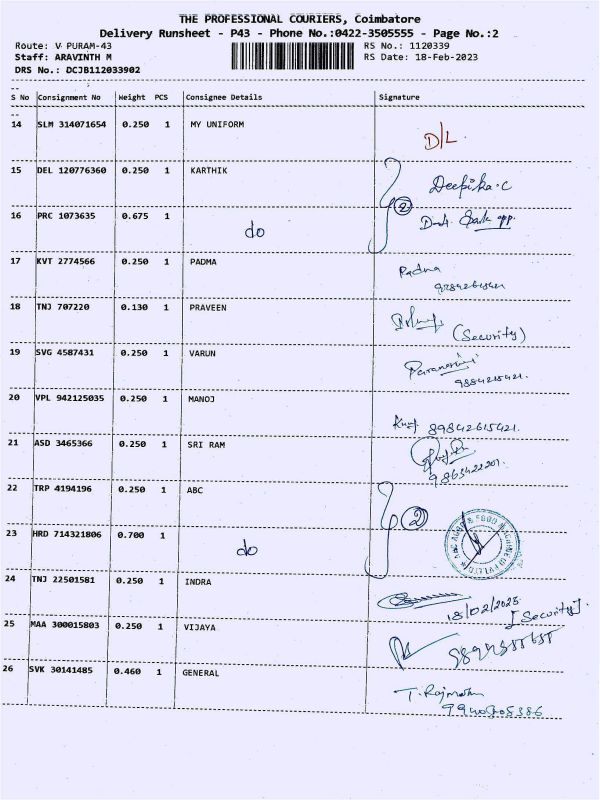 THE PROFESSIONAL COURIERS, Coimbatore
Delivery Runsheet - P43 - Phone No.:0422-3505555 - Page No.:2
Route: V PURAM-43 RS No.: 1120339
Staff: ARAVINTH M RS Date: 18-Feb-2023
DRS No.: DCJB112033902
S No Consignment No Weight PCS Consignee Details Signature
14 SLM 314071654 0.250 1 MY UNIFORM D/L
15 DEL 120776360 0.250 1 KARTHIK Deepika.C
2
16 PRC 1073635 0.675 1 do
17 KVT 2774566 0.250 1 PADMA Padma
18 TNJ 707220 0.130 1 PRAVEEN (Security)
19 SVG 4587431 0.250 1 VARUN
9884215421.
20 VPL 942125035 0.250 1 MANOJ 89842615421.
21 ASD 3465366 0.250 1 SRI RAM
9863422201.
22 TRP 4194196 0.250 1 ABC
2
23 HRD 714321806 0.700 1 do
24 TNJ 22501581 0.250 1 INDRA
18/02/2023
[Security].
25 MAA 300015803 0.250 1 VIJAYA
26 SVK 30141485 0.460 1 GENERAL